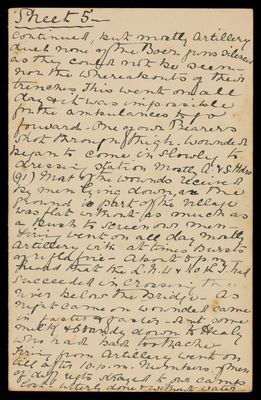 Sheet 5-
Continued, but mostly Artillery
duel none of the Boer guns silenced
as they could not be seen
nor the whereabouts of their
trenches. This went on all
day & it was impossible
for the ambulances to go
forward. One of our Bearers
shot through thigh. Wounded
began to come in slowly to
dressing station mostly A. & S. Hdrs
91) Most of the wounds received
by men lying down, as
ground in part of the village
was flat without as much as
a bush to screen our men
Firing went on all day mostly
Artillery with at times Bursts
of rifle fire - about 5 p.m.
heard that the L.N.L &
succeeded in crossing the
river below the bridge - As
night came on wounded came
in faster & faster - Sent some
milk & Brandy down to Healy
who had bad toothache
Firing from Artillery went on
till after 10 p.m. Numbers of men
of diff regts strayed to our camp
lost & utterly done & without water